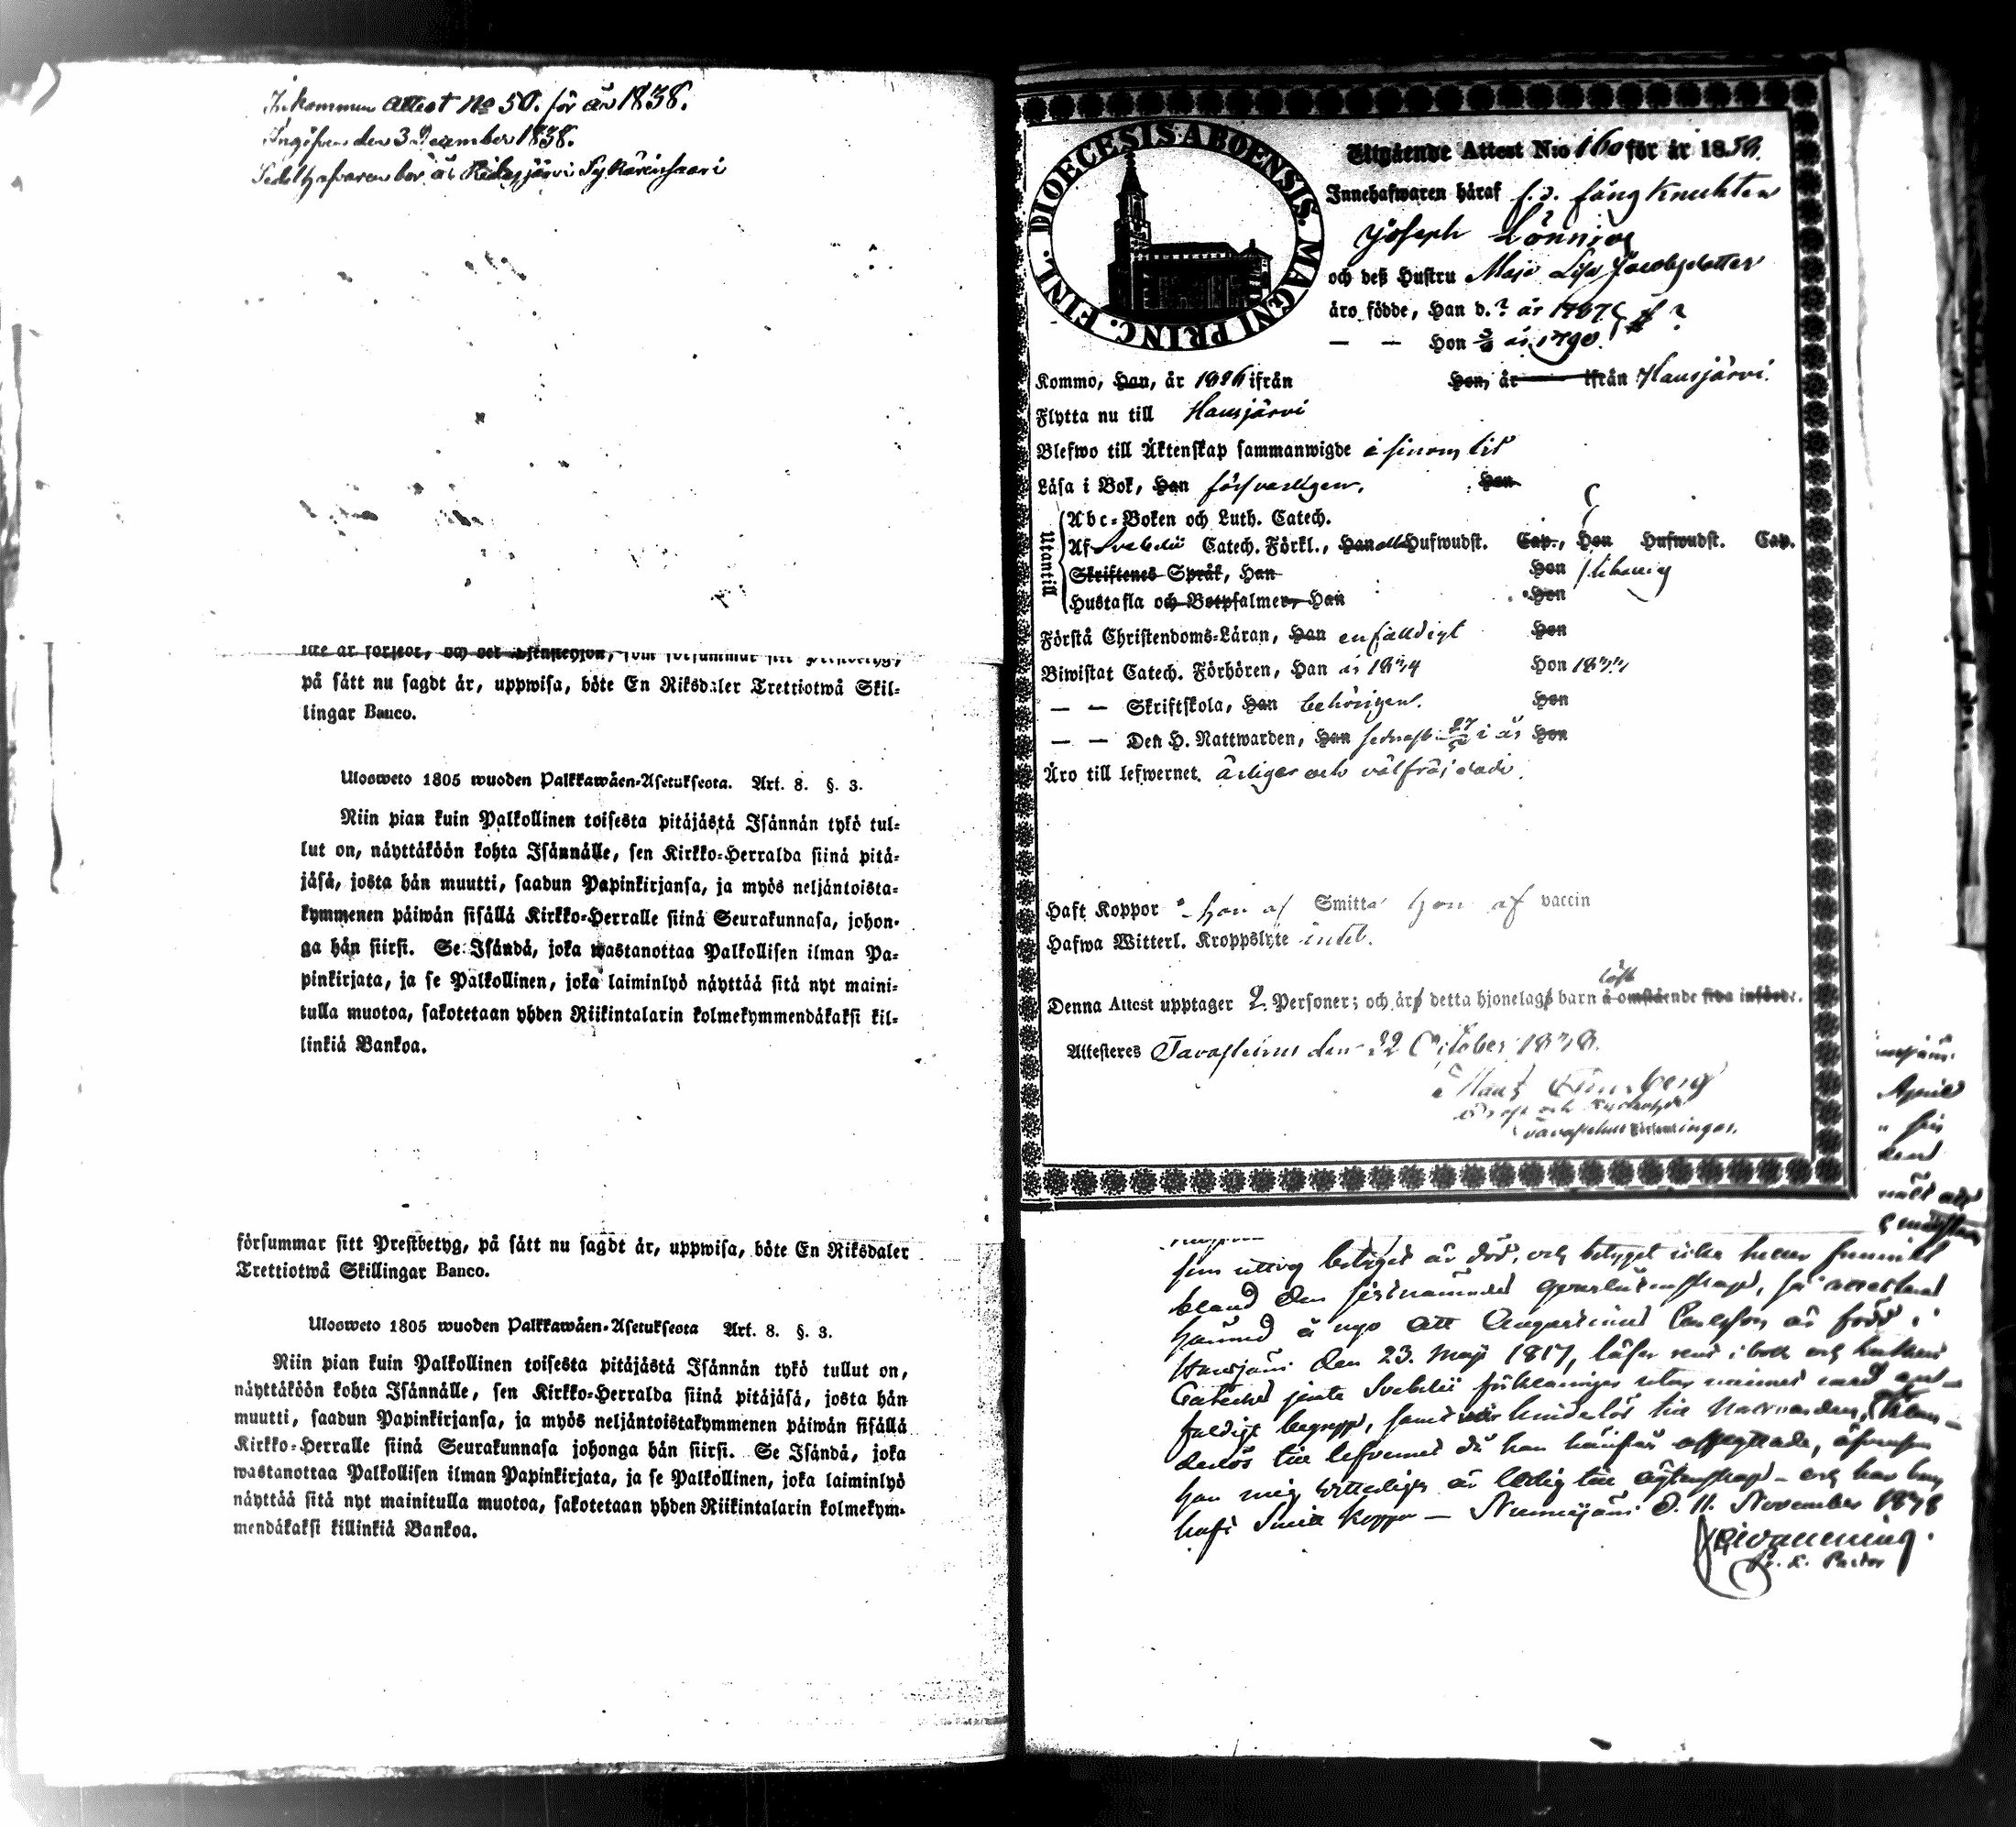 Inkommen attest No 50. för år 1838.
Ingifven den 3 December 1838.
Sedelhafvaren bor
ike är förseor, och det
på sätt nu sagdt är, uppwisa, böte En Riksdaler Trettiotwå Skil-
lingar Banco.
Ulosweto 1805 wuoden Palkkawäen-Asetuksesta. Art. 8. §. 3.
Niin pian kuin Palkollinen toisesta pitäjästä Isännän tykö tul-
lut on, näyttäköön kohta Isännälle, sen Kirkko-Herralda siinä pitä-
jäsä, josta hän muutti, saadun Papinkirjansa, ja myös neljäntoista-
kymmenen päiwän sisällä Kirkko-Herralle siinä Seurakunnasa, johon-
ga hän siirsi. Se Isändä, joka wastanottaa Palkollisen ilman Pa-
pinkirjata, ja se Palkollinen, joka laiminlyö näyttää sitä nyt maini-
tulla muotoa, sakotetaan yhden Riikintalarin kolmekymmendäkaksi kil-
linkiä Bankoa.
försummar sitt Prestbetyg, på sätt nu sagdt är, uppwisa, böte En Riksdaler
Trettiotwå Skillingar Banco.
Ulosweto 1805 wuoden Palkkawäen-Asetuksesta Art. 8. §. 3.
Niin pian kuin Palkollinen toisesta pitäjästä Isännän tykö tullut on,
näyttäköön kohta Isännälle, sen Kirkko-Herralda siinä pitäjäsä, josta hän
muutti, saadun Papinkirjansa, ja myös neljäntoistakymmenen päiwän sisällä
Kirkko-Herralle siinä Seurakunnasa johonga hän siirsi. Se Isändä, joka
wastanottaa Palkollisen ilman Papinkirjata, ja se Palkollinen, joka laiminlyö
näyttää sitä nyt mainitulla muotoa, sakotetaan yhden Riikintalarin kolmekym-
mendäkaksi killinkiä Bankoa.
DIOECESIS ABOENSIS. MAGNI PRINC. FINL.
Utgående Attest N:o 160 för år 1838.
Innehafwaren häraf f.d. fångknekten
Joseph Lönnqvist
och deß Hustru Maja Lisa Jacobsdotter
äro födde, Han d. ? år
— — Hon år 1790.
Kommo, Han, år 1826 ifrån Hon, år ifrån Hausjärvi.
Flytta nu till Hausjärvi
Blefwo till Äktenskap sammanwigde i sinom tid
Läsa i Bok, Han försvarligen. Hon
Utantill
Abc-Boken och Luth. Catech.
Af Svebelii Catech. Förkl., Han alla Hufwudst. Cap., Hon Hufwudst. Cap.
Skriftenes Språk, Han Hon
Hustafla och Botpsalmer, Han Hon
Förstå Christendoms-Läran, Han enfaldigt Hon
Biwistat Catech. Förhören, Han år 1834 Hon
— — Skriftskola, Han behörigen. Hon
— — Den H. Nattwarden, Han sednast i år Hon
Äro till lefwernet. ärlige och välfräjdade.
Haft Koppor Han af Smitta Hon af vaccin
Hafwa Witterl. Kroppslyte intet.
Denna Attest upptager 2. Personer; och äro detta hjonelags barn å omstående sida införde.
Attesteres Tavastehus den 22 October 1838.
Prost och Kyrkoherde
Tavastehus Församlingar.
som uttog betyget är död, och betyget icke heller funnits
bland den förstnämndes qvarlåtenskap, så attesteras
härmed å nyo att Augustinus Carlsson är född i
Hausjärvi den 23. Maji 1817, läser rent i bok och Luthers
Cateches jemte Svebelii förklaringar utan med en-
faldigt begrepp, samt var hinderlös till Nattvarden, klan-
derlös till lefvernet då han härifrån afflyttade, äfvensom
han mig vitterligen är ledig till ägtenskap — och har
haft Smitt koppor — Nummijärvi d. 11. November 1838
Pastor